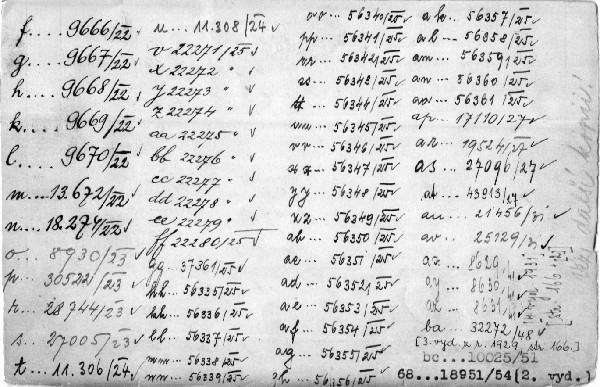 f.... 9666/22
g.... 9667/22
h.... 9668/22
k.... 9669/22
l.... 9670/22
m... 13.672/22
n... 18.274/22
o... 8930/23
p... 30522/23
r... 28744/23
s... 27005/23
t... 11.306/24
u... 11.308/24
v 22271/25
x 22272 "
y 22273 "
z 22274 "
aa 22275 "
bb 22276 "
cc 22277 "
dd 22278 "
ee 22279 "
ff 22280/25
gg.. 37361/25
hh... 56335/25
kk... 56336/25
ll... 56337/25
mm... 56338/25
nn... 56339/25
oo... 56340/25
pp... 56341/25
rr... 56342/25
ss... 56343/25
tt... 56344/25
uu... 56345/25
vv... 56346/25
xx... 56347/25
yy... 56348/25
zz... 56349/25
ab... 56350/25
ac... 56351/25
ad... 56352/25
ae... 56353/25
af... 56354/25
ag... 56355/25
ah... 56356/25
ak... 56357/25
al... 56358/25
am... 56359/25
an... 56360/25
ao... 56361/25
ap... 17110/27
ar... 19524/27
as... 27096/27
at... 43913/27
au... 21456/31
av... 25129/31
ax... 8629/41
ay... 8630/41
az... 8631/41
ba... 32272/48
[3. vyd. z r. 1929, str. 166.]
bc... 10025/51
68...18951/54[2. vyd.]
viz další kopie